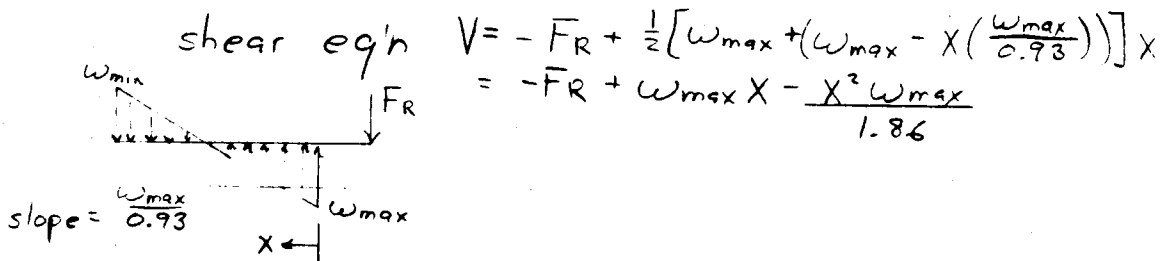 shear eq'n V = - FR + 1/2 [ωmax + (ωmax - X(ωmax/0.93))] X
= -FR + ωmax X - X² ωmax/1.86
ωmin
FR
ωmax
slope = ωmax/0.93
X